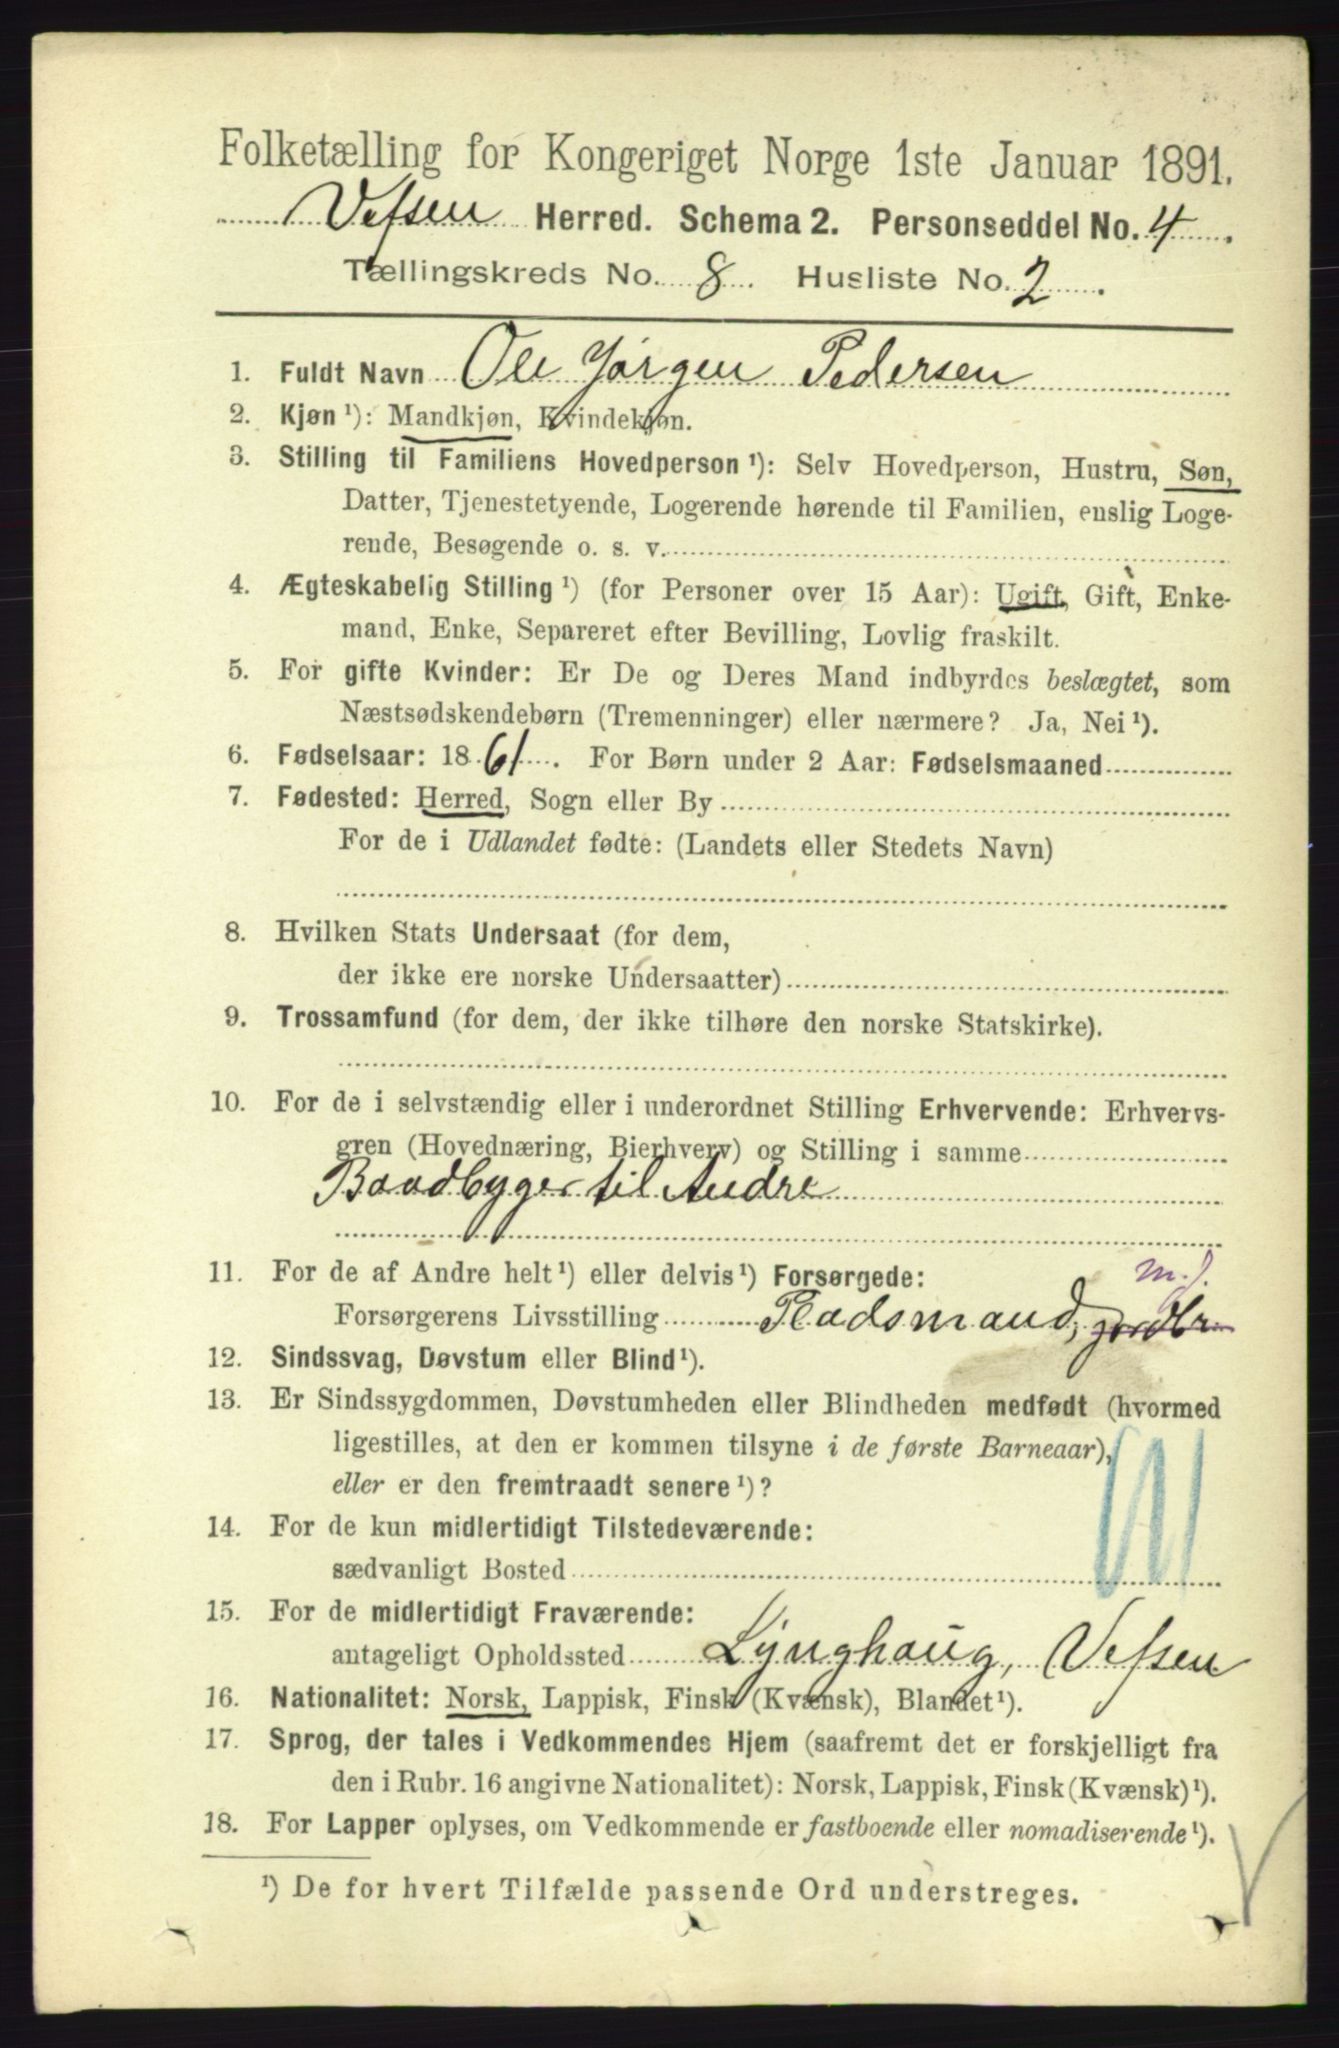 Folketælling for Kongeriget Norge 1ste Januar 1891.
Vefsen Herred. Schema 2. Personseddel No. 4
Tællingskreds No. 8. Husliste No. 2.
1. Fuldt Navn Ole Jørgen Pedersen
2. Kjøn ¹): Mandkjøn, Kvindekjøn.
3. Stilling til Familiens Hovedperson ¹): Selv Hovedperson, Hustru, Søn,
Datter, Tjenestetyende, Logerende hørende til Familien, enslig Loge-
rende, Besøgende o. s. v.
4. Ægteskabelig Stilling ¹) (for Personer over 15 Aar): Ugift, Gift, Enke-
mand, Enke, Separeret efter Bevilling, Lovlig fraskilt.
5. For gifte Kvinder: Er De og Deres Mand indbyrdes beslægtet, som
Næstsødskendebørn (Tremenninger) eller nærmere? Ja, Nei ¹).
6. Fødselsaar: 1861. For Børn under 2 Aar: Fødselsmaaned
7. Fødested: Herred, Sogn eller By
For de i Udlandet fødte: (Landets eller Stedets Navn)
8. Hvilken Stats Undersaat (for dem,
der ikke ere norske Undersaatter)
9. Trossamfund (for dem, der ikke tilhøre den norske Statskirke).
10. For de i selvstændig eller i underordnet Stilling Erhvervende: Erhvervs-
gren (Hovednæring, Bierhverv) og Stilling i samme
Baadbyger til Andre
11. For de af Andre helt ¹) eller delvis ¹) Forsørgede: m. j.
Forsørgerens Livsstilling Pladsmand, jordbr.
12. Sindssvag, Døvstum eller Blind ¹).
13. Er Sindssygdommen, Døvstumheden eller Blindheden medfødt (hvormed
ligestilles, at den er kommen tilsyne i de første Barneaar),
eller er den fremtraadt senere ¹)?
14. For de kun midlertidigt Tilstedeværende:
sædvanligt Bosted
15. For de midlertidigt Fraværende:
antageligt Opholdssted Lynghaug, Vefsen
16. Nationalitet: Norsk, Lappisk, Finsk (Kvænsk), Blandet ¹).
17. Sprog, der tales i Vedkommendes Hjem (saafremt det er forskjelligt fra
den i Rubr. 16 angivne Nationalitet): Norsk, Lappisk, Finsk (Kvænsk) ¹).
18. For Lapper oplyses, om Vedkommende er fastboende eller nomadiserende ¹).
¹) De for hvert Tilfælde passende Ord understreges.